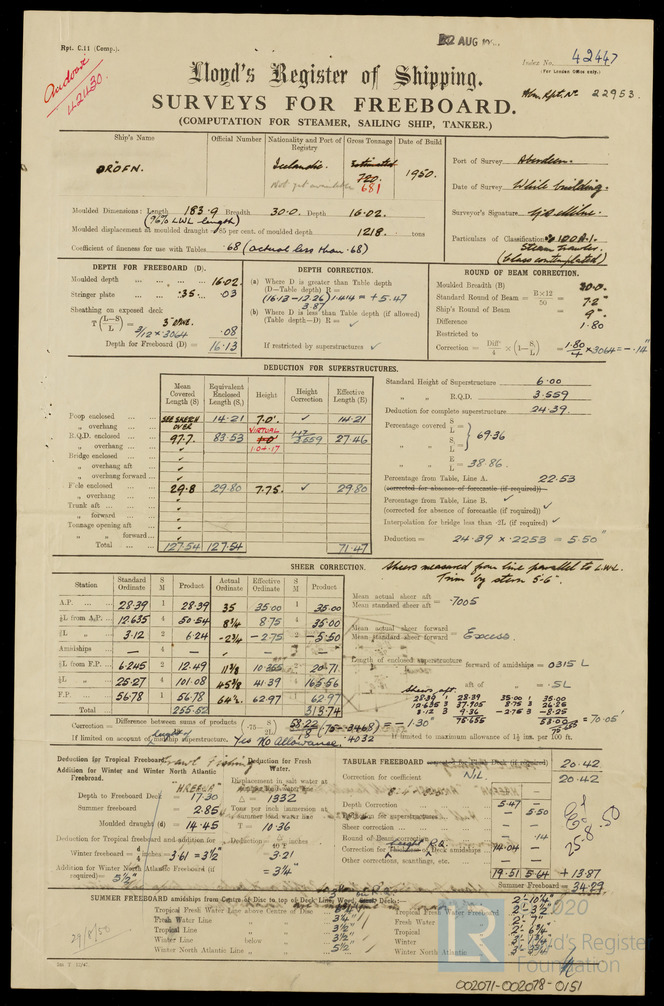 AUG
Rpt. C.11 (Comp.).
Index No. 42447
(For London Office only.)
Lloyd's Register of Shipping.
Rpt. No. 22953.
SURVEYS FOR FREEBOARD.
(COMPUTATION FOR STEAMER, SAILING SHIP, TANKER.)
Ship's Name
Official Number
Nationality and Port of Registry
Gross Tonnage
Date of Build
ÖRÓFN.
Icelandic.
Estimated
720.
681
1950.
Port of Survey Aberdeen.
Date of Survey While building.
Surveyor's Signature
Particulars of Classification 100A-1.
Steam Trawler.
(Class contemplated)
Moulded Dimensions: Length 183.9 Breadth 30.0 Depth 16.02.
(96% LWL length)
Moulded displacement at moulded draught 85 per cent. of moulded depth 1218. tons
Coefficient of fineness for use with Tables .68 (actual less than .68)
DEPTH FOR FREEBOARD (D).
Moulded depth 16.02.
Stringer plate .35. .03
Sheathing on exposed deck
T (L—S/L) 3" PINE.
3/12 × .3064 .08
Depth for Freeboard (D) = 16.13
DEPTH CORRECTION.
(a) Where D is greater than Table depth
(D—Table depth) R =
(16.13 - 12.26) 1.414 = + 5.47
3.87
(b) Where D is less than Table depth (if allowed)
(Table depth—D) R = ✓
If restricted by superstructures ✓
ROUND OF BEAM CORRECTION.
Moulded Breadth (B) 30.0.
Standard Round of Beam = B×12/50 = 7.2"
Ship's Round of Beam = 9"
Difference 1.80
Restricted to
Correction = Diff/4 × (1—S/L) = 1.80/4 × .3064 = -.14"
DEDUCTION FOR SUPERSTRUCTURES.
Mean Covered Length (S)
Equivalent Enclosed Length (S₁)
Height
Height Correction
Effective Length (E)
Poop enclosed SEE SKETCH OVER 14.21 7.0' ✓ 14.21
" overhang
R.Q.D. enclosed 97.7. 83.53 VIRTUAL 3.559 27.46
" overhang 1.0+.17
Bridge enclosed
" overhang aft
" overhang forward
F'cle enclosed 29.8 29.80 7.75. ✓ 29.80
" overhang
Trunk aft
" forward
Tonnage opening aft
" " forward
Total 127.54 127.54 71.47
Standard Height of Superstructure 6.00
" " R.Q.D. 3.559
Deduction for complete superstructure 24.39
Percentage covered S/L =
S₁/L = 69.36
" " E/L = 38.86.
Percentage from Table, Line A. 22.53
(corrected for absence of forecastle (if required))
Percentage from Table, Line B. ✓
(corrected for absence of forecastle (if required)) ✓
Interpolation for bridge less than .2L (if required) ✓
Deduction = 24.39 × .2253 = 5.50"
SHEER CORRECTION.
Sheers measured from line parallel to L.W.L.
Trim by stern 5'6".
Station
Standard Ordinate
S M
Product
Actual Ordinate
Effective Ordinate
S M
Product
A.P. 28.39 1 28.39 35 35.00 1 35.00
⅙L from A.P. 12.635 4 50.54 8¾ 8.75 4 35.00
⅓L " 3.12 2 6.24 -2¾ -2.75 2 -5.50
Amidships — 4 — 4
⅓L from F.P. 6.245 2 12.49 2 20.71
⅙L " 25.27 4 101.08 41.39 4 165.56
F.P. 56.78 1 56.78 62.97 1 62.97
Total 255.52 313.74
Mean actual sheer aft
Mean standard sheer aft = .7005
Mean actual sheer forward
Mean standard sheer forward = Excess.
Length of enclosed superstructure
forward of amidships = .0315 L
aft of " = .5L
Sheers aft.
28.39 1 28.39 35.00 1 35.00
12.635 3 37.905 8.75 3 26.25
3.12 3 9.36 -2.75 3 -8.25
75.655 53.00
= 70.05%
Correction = Difference between sums of products/18 (.75—S/2L) = 58.22/18 (.75-.3468) = - 1.30"
.4032
If limited on account of midship superstructure. Yes No Allowance.
If limited to maximum allowance of 1½ ins. per 100 ft.
Deduction for Tropical Freeboard
Addition for Winter and Winter North Atlantic Freeboard.
Depth to Freeboard Deck = 17.30
Summer freeboard = 2.85
Moulded draught (d) = 14.45
Deduction for Tropical freeboard and addition for
Winter freeboard = d/4 inches = 3.61 = 3½"
Addition for Winter North Atlantic Freeboard (if required) = 5½"
Deduction for Fresh Water.
Displacement in salt water at
Δ = 1332
Tons per inch immersion at
summer load water line
T = 10.36
Deduction = Δ/40 T inches
= 3.21
= 3¼"
TABULAR FREEBOARD 20.42
Correction for coefficient NIL. 20.42
Depth Correction 5.47 —
Deduction for superstructures — 5.50
Sheer correction — —
Round of Beam correction — .14
Correction for height R.Q. Deck amidships 14.04 —
Other corrections, scantlings, etc.
19.51 5.64 + 13.87
Summer Freeboard = 34.29.
25.8.50
SUMMER FREEBOARD amidships from Centre of Disc to top of Deck Line, Deck: 2'-10¼"
Tropical Fresh Water Line above Centre of Disc
Fresh Water Line " 3¼"
Tropical Line " 3½"
Winter Line below " 3½"
Winter North Atlantic Line " 5½"
Tropical Fresh Water Freeboard 2'-3½"
Fresh Water " 2'-7"
Tropical " 2'-6¾"
Winter " 3'-1¾"
Winter North Atlantic " 3'-3¾"
29/8/50
2020
Lloyd's Register
Foundation
002071-002078-0151